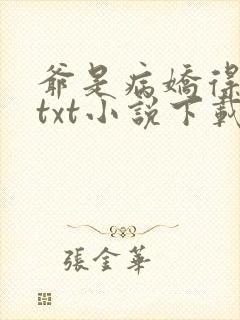 爺是病嬌得
txt小說下載
張金華